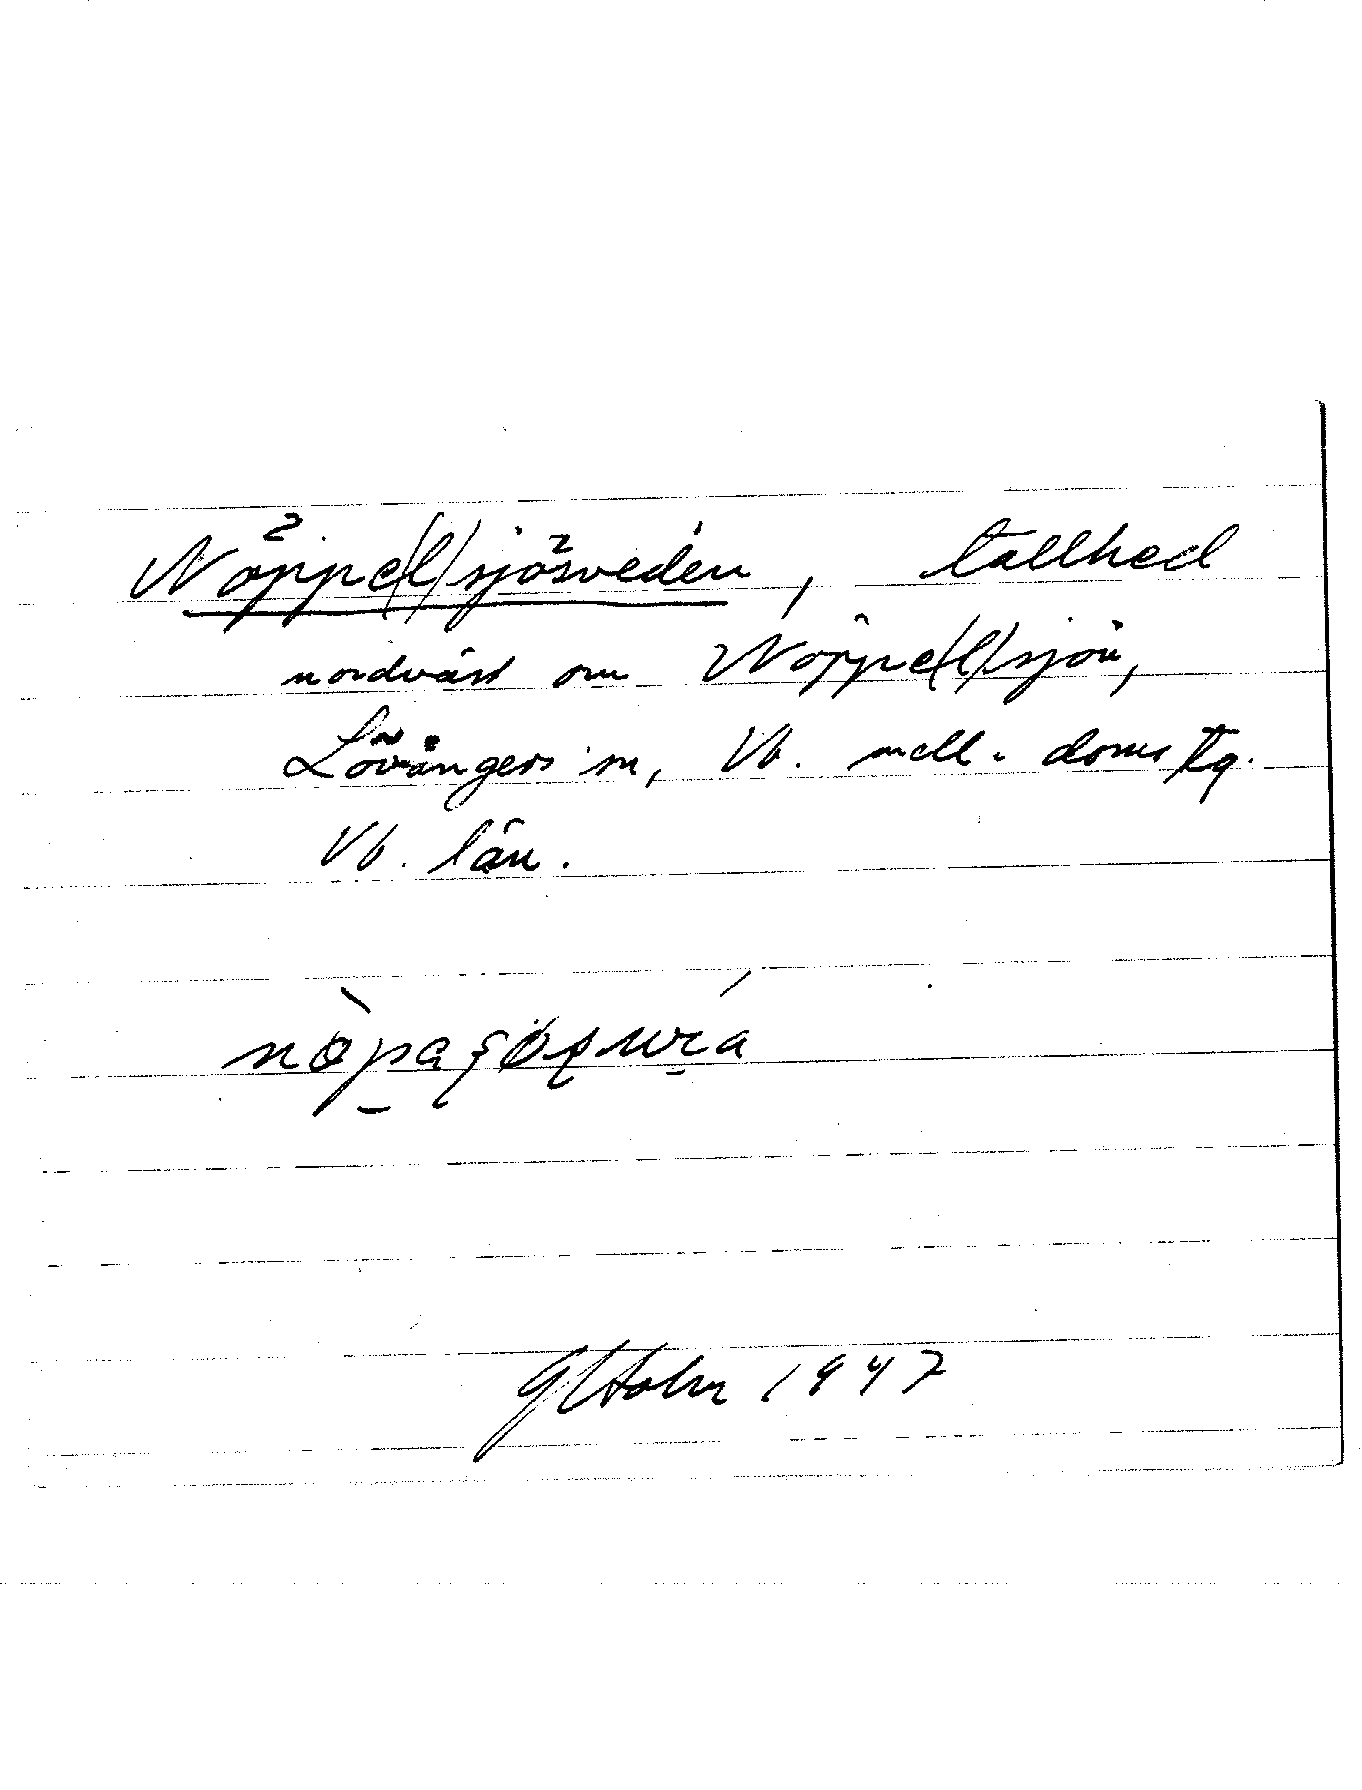 Nöppe(l)sjösveden, tallhed
nordväst om Nöppe(l)sjön,
Lövångers sn, Vb. mell. doms tg.
Vb. län.
GHolm 1947